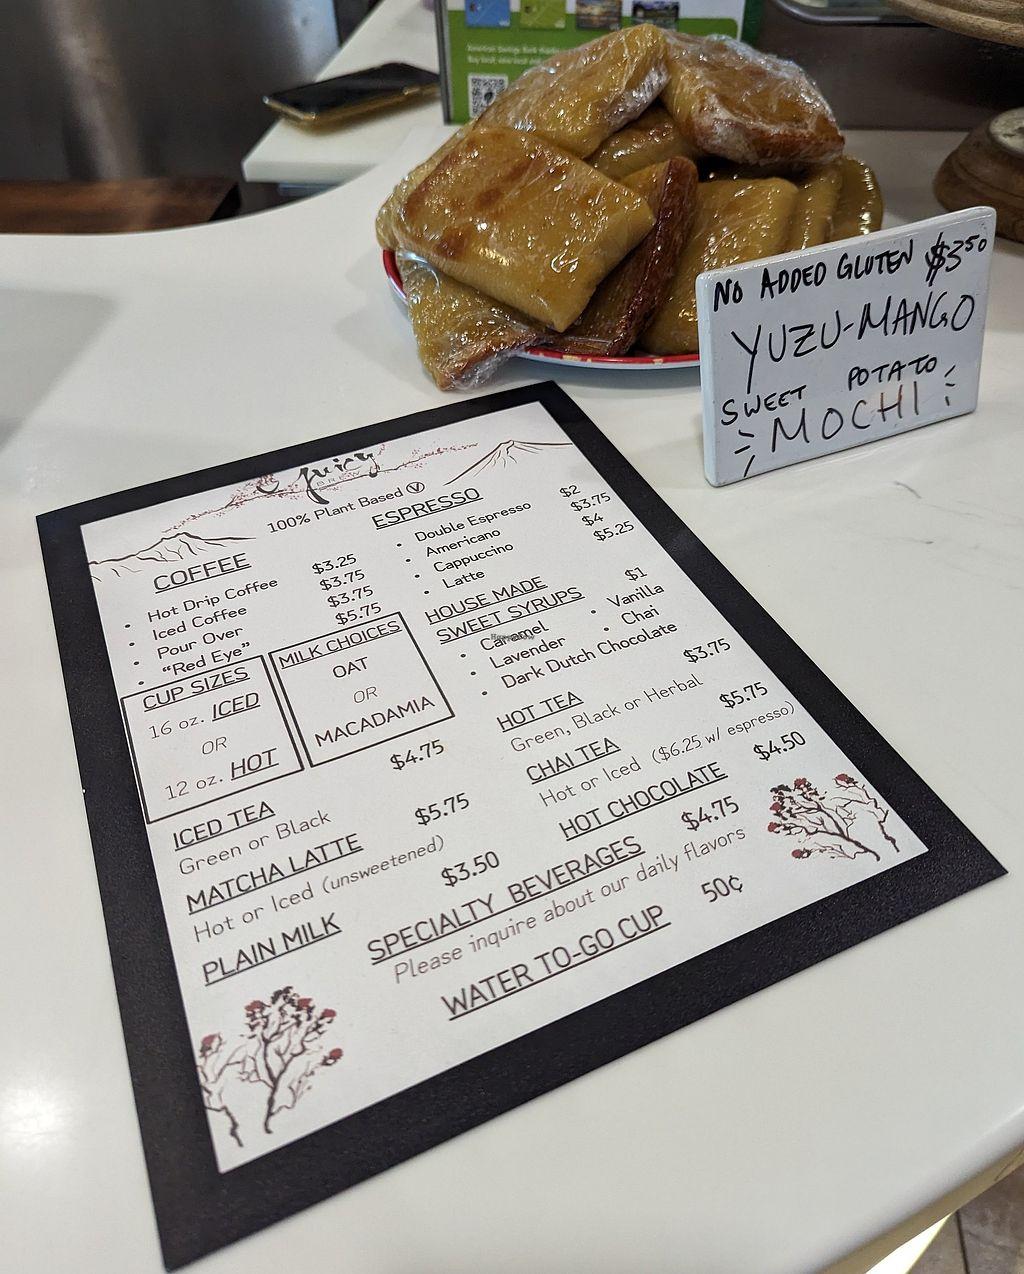 NO ADDED GLUTEN $3.50
YUZU-MANGO
SWEET POTATO
MOCHI
Juicy
BREW
100% Plant Based V
COFFEE
• Hot Drip Coffee $3.25
• Iced Coffee $3.75
• Pour Over $3.75
• "Red Eye" $5.75
ESPRESSO
• Double Espresso $2
• Americano $3.75
• Cappuccino $4
• Latte $5.25
CUP SIZES
16 oz. ICED
OR
12 oz. HOT
MILK CHOICES
OAT
OR
MACADAMIA
HOUSE MADE
SWEET SYRUPS $1
• Caramel • Vanilla
• Lavender • Chai
• Dark Dutch Chocolate
ICED TEA $4.75
Green or Black
MATCHA LATTE $5.75
Hot or Iced (unsweetened)
PLAIN MILK $3.50
HOT TEA $3.75
Green, Black or Herbal
CHAI TEA $5.75
Hot or Iced ($6.25 w/ espresso)
HOT CHOCOLATE $4.50
SPECIALTY BEVERAGES $4.75
Please inquire about our daily flavors
WATER TO-GO CUP 50¢